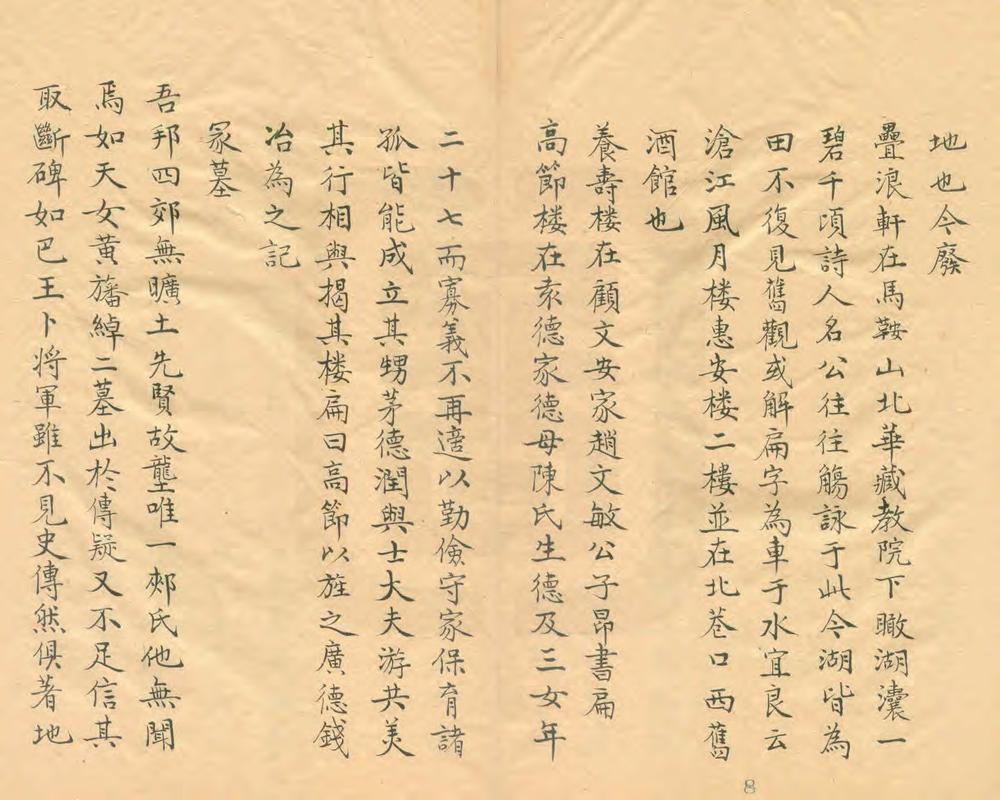 地也今廢
疊浪軒在馬鞍山北華藏教院下瞰湖瀼一
碧千頃詩人名公往往觴詠于此今湖皆為
田不復見舊觀或解扁字為車于水宜良云
滄江風月楼惠安楼二樓並在北巷口西舊
酒館也
養壽楼在顧文安家趙文敏公子昂書扁
高節楼在袁德家德母陳氏生德及三女年
二十七而寡義不再適以勤儉守家保育諸
孤皆能成立其甥茅德潤與士大夫游共美
其行相與揭其楼扁曰高節以旌之廣德錢
冶為之記
冢墓
吾邦四郊無曠土先賢故壟唯一郟氏他無聞
焉如天女黃旛綽二墓出於傳疑又不足信其
取斷碑如巴王卜將軍雖不見史傳然俱著地
8